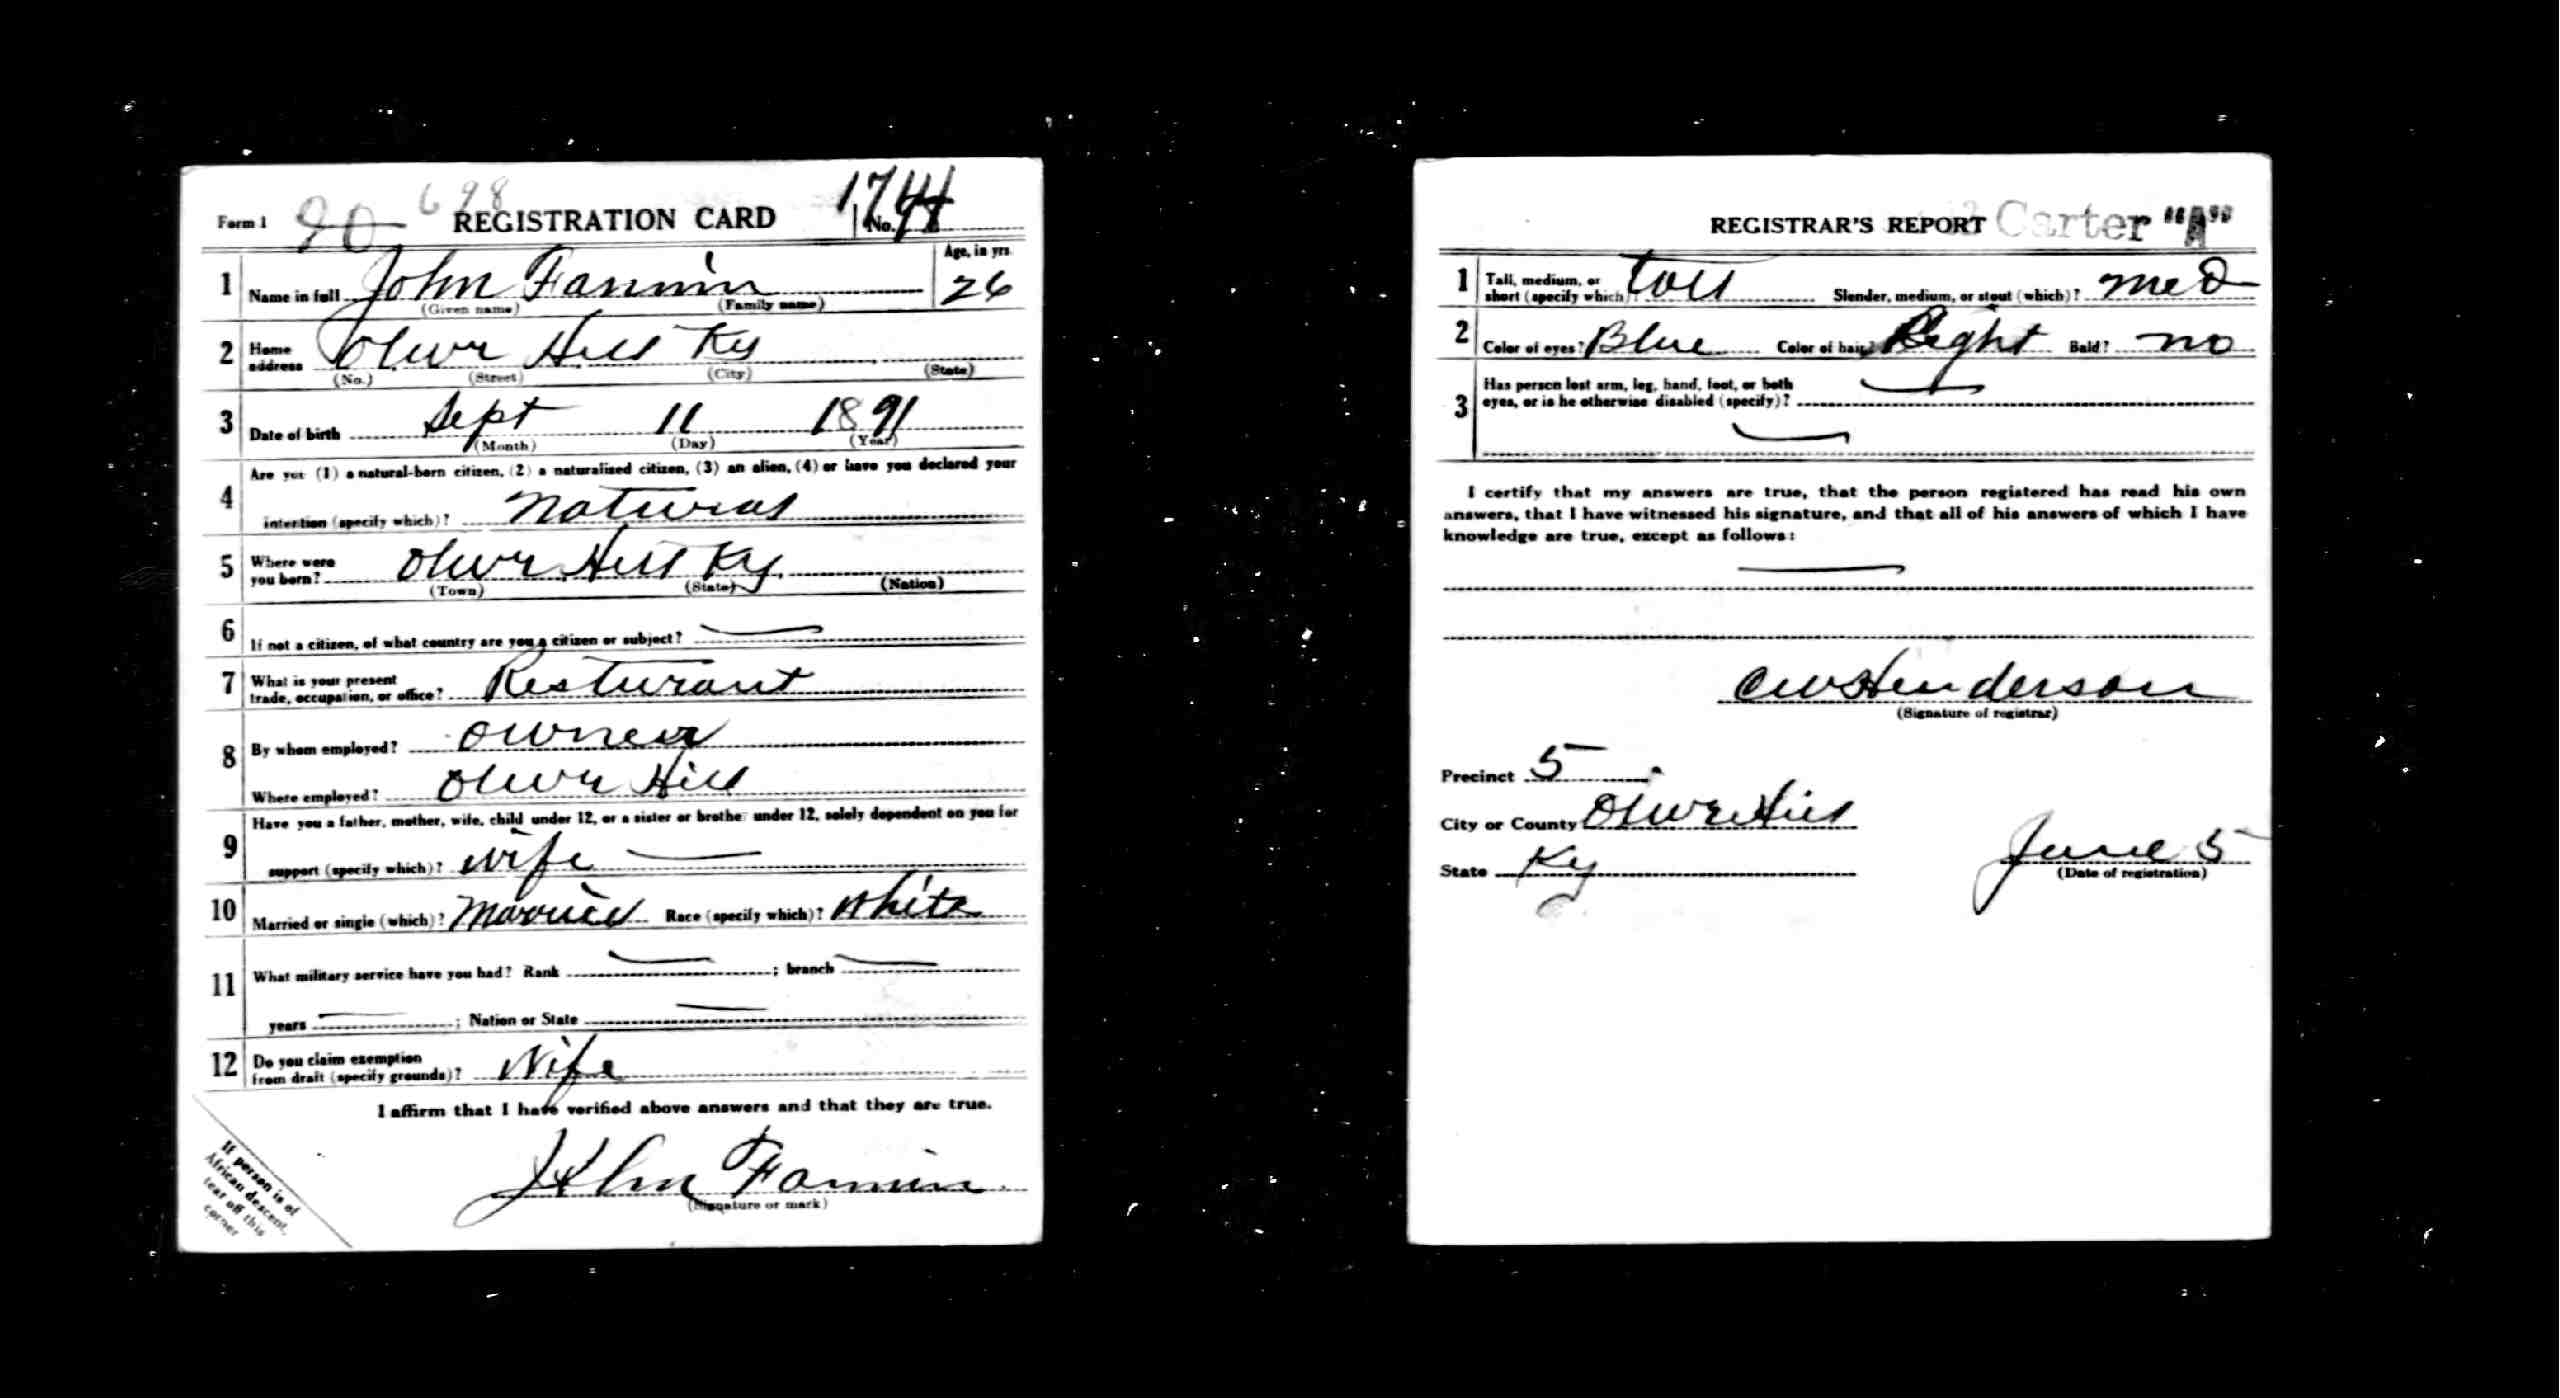 Form 1 90 698 REGISTRATION CARD No. 1744
1 Name in full John Fannin Age, in yrs. 26
(Given name) (Family name)
2 Home address Olive Hill Ky
(No.) (Street) (City) (State)
3 Date of birth Sept 11 1891
(Month) (Day) (Year)
4 Are you (1) a natural-born citizen, (2) a naturalized citizen, (3) an alien, (4) or have you declared your
intention (specify which)? Natural
5 Where were you born? Olive Hill Ky.
(Town) (State) (Nation)
6 If not a citizen, of what country are you a citizen or subject? —
7 What is your present trade, occupation, or office? Resturant
8 By whom employed? owner
Where employed? Olive Hill
9 Have you a father, mother, wife, child under 12, or a sister or brother under 12, solely dependent on you for
support (specify which)? wife —
10 Married or single (which)? Married Race (specify which)? White
11 What military service have you had? Rank — ; branch —
years — ; Nation or State —
12 Do you claim exemption from draft (specify grounds)? Wife
I affirm that I have verified above answers and that they are true.
John Fannin
(Signature or mark)
If person is of
African descent,
tear off this
corner
REGISTRAR'S REPORT Carter "A"
1 Tall, medium, or short (specify which)? Tall Slender, medium, or stout (which)? Med
2 Color of eyes? Blue Color of hair? Light Bald? no
3 Has person lost arm, leg, hand, foot, or both
eyes, or is he otherwise disabled (specify)? —
—
I certify that my answers are true, that the person registered has read his own
answers, that I have witnessed his signature, and that all of his answers of which I have
knowledge are true, except as follows:
—
CW Henderson
(Signature of registrar)
Precinct 5
City or County Olive Hill
State Ky
June 5
(Date of registration)